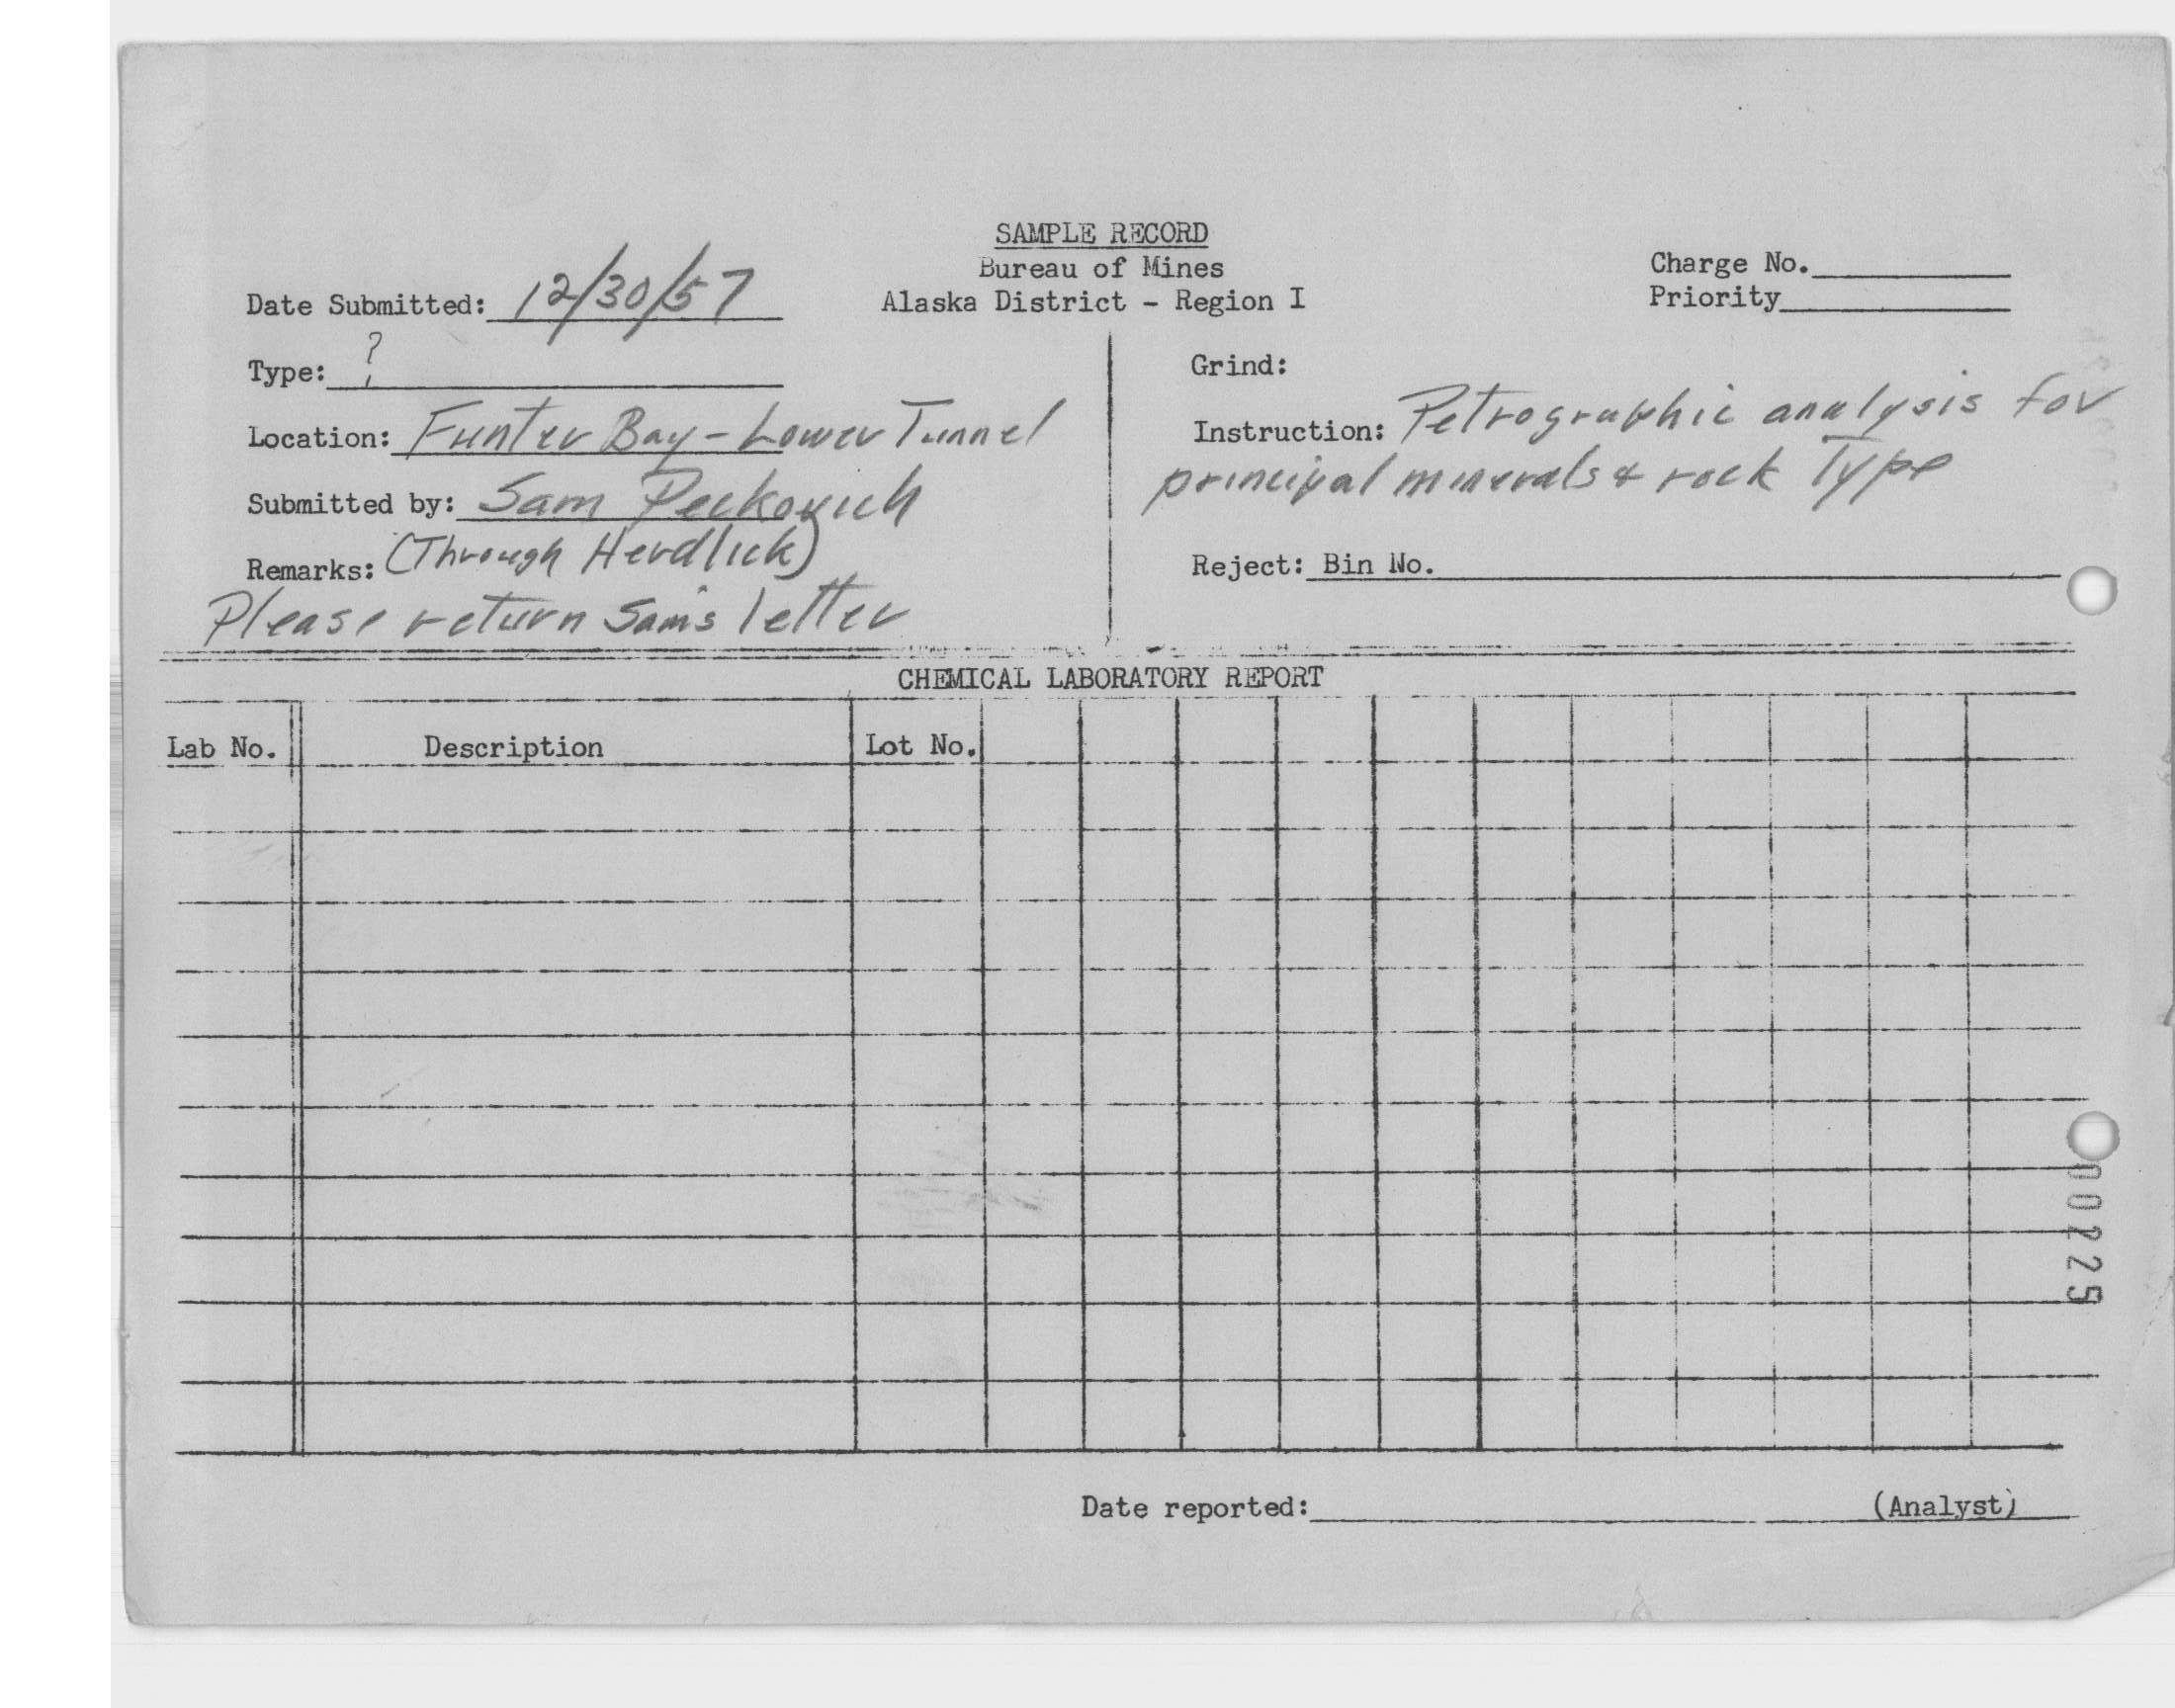 SAMPLE RECORD
Bureau of Mines
Alaska District - Region I
Charge No.
Priority
Date Submitted: 12/30/57
Type: ?
Location: Funter Bay - Lower Tunnel
Submitted by: Sam Peckovich
Remarks: (Through Herdlick)
Please return Sam's letter
Grind:
Instruction: Petrographic analysis for
principal minerals & rock Type
Reject: Bin No.
CHEMICAL LABORATORY REPORT
Lab No. Description Lot No.
00225
Date reported: (Analyst)